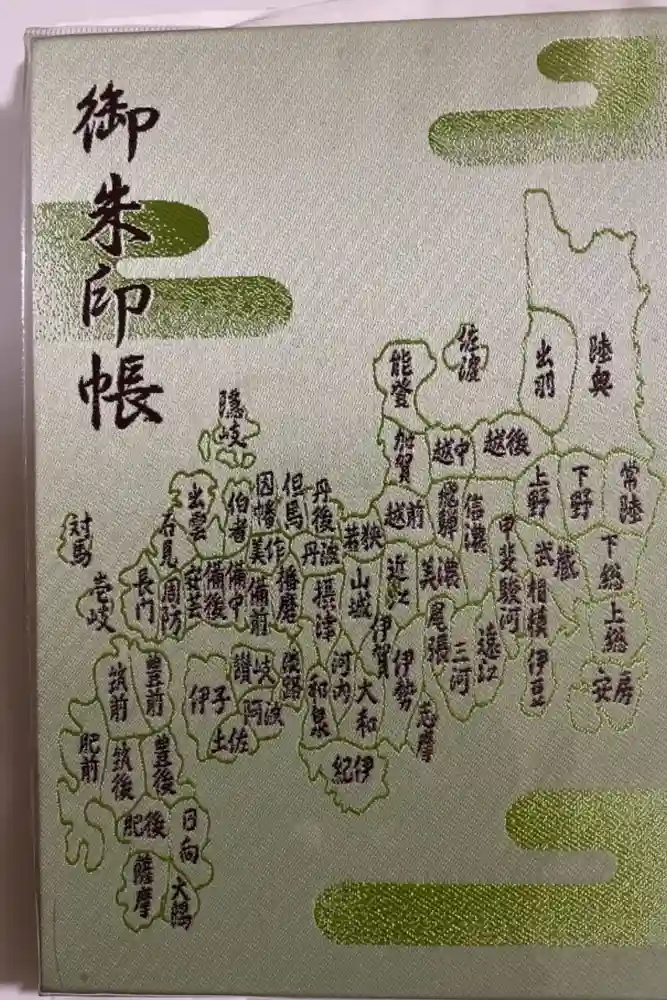 御朱印帳
陸奥
出羽
佐渡
能登
加賀
越中
越後
上野
下野
常陸
隠岐
出雲
伯耆
因幡
但馬
丹後
丹波
若狭
越前
飛騨
信濃
甲斐
武蔵
下総
上総
安房
対馬
壱岐
石見
長門
周防
安芸
備後
備中
美作
備前
播磨
摂津
山城
近江
美濃
尾張
三河
遠江
駿河
相模
伊豆
伊賀
伊勢
志摩
河内
和泉
大和
紀伊
淡路
讃岐
阿波
伊予
土佐
筑前
豊前
肥前
筑後
豊後
肥後
日向
薩摩
大隅